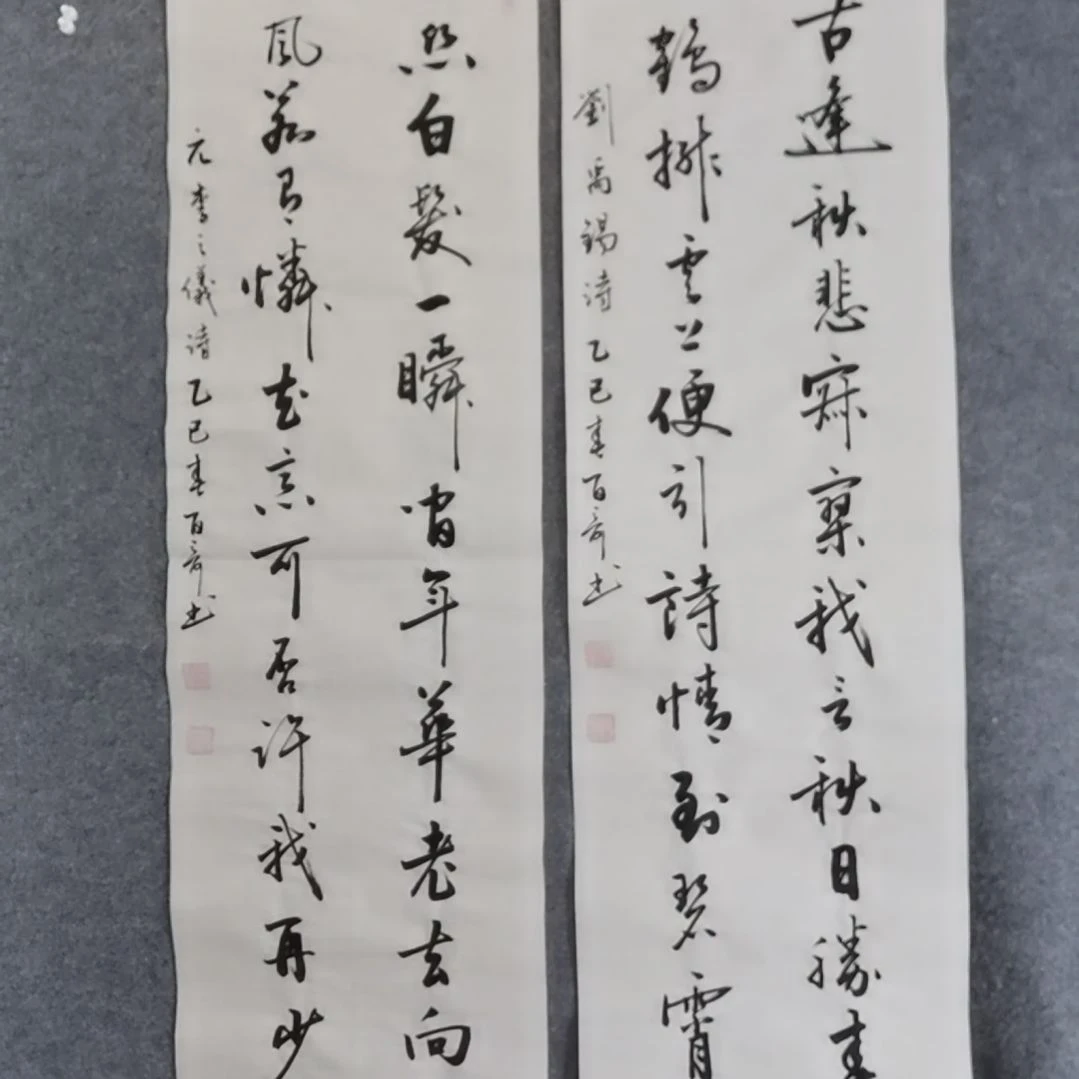 古逢秋悲寂寥我言秋日勝春
鶴排雲上便引詩情到碧霄
劉禹錫詩乙巳春百奇书
然白髮一瞬間年華老去向
風若有憐花意可否許我再少
元李之儀詩乙巳春百奇书